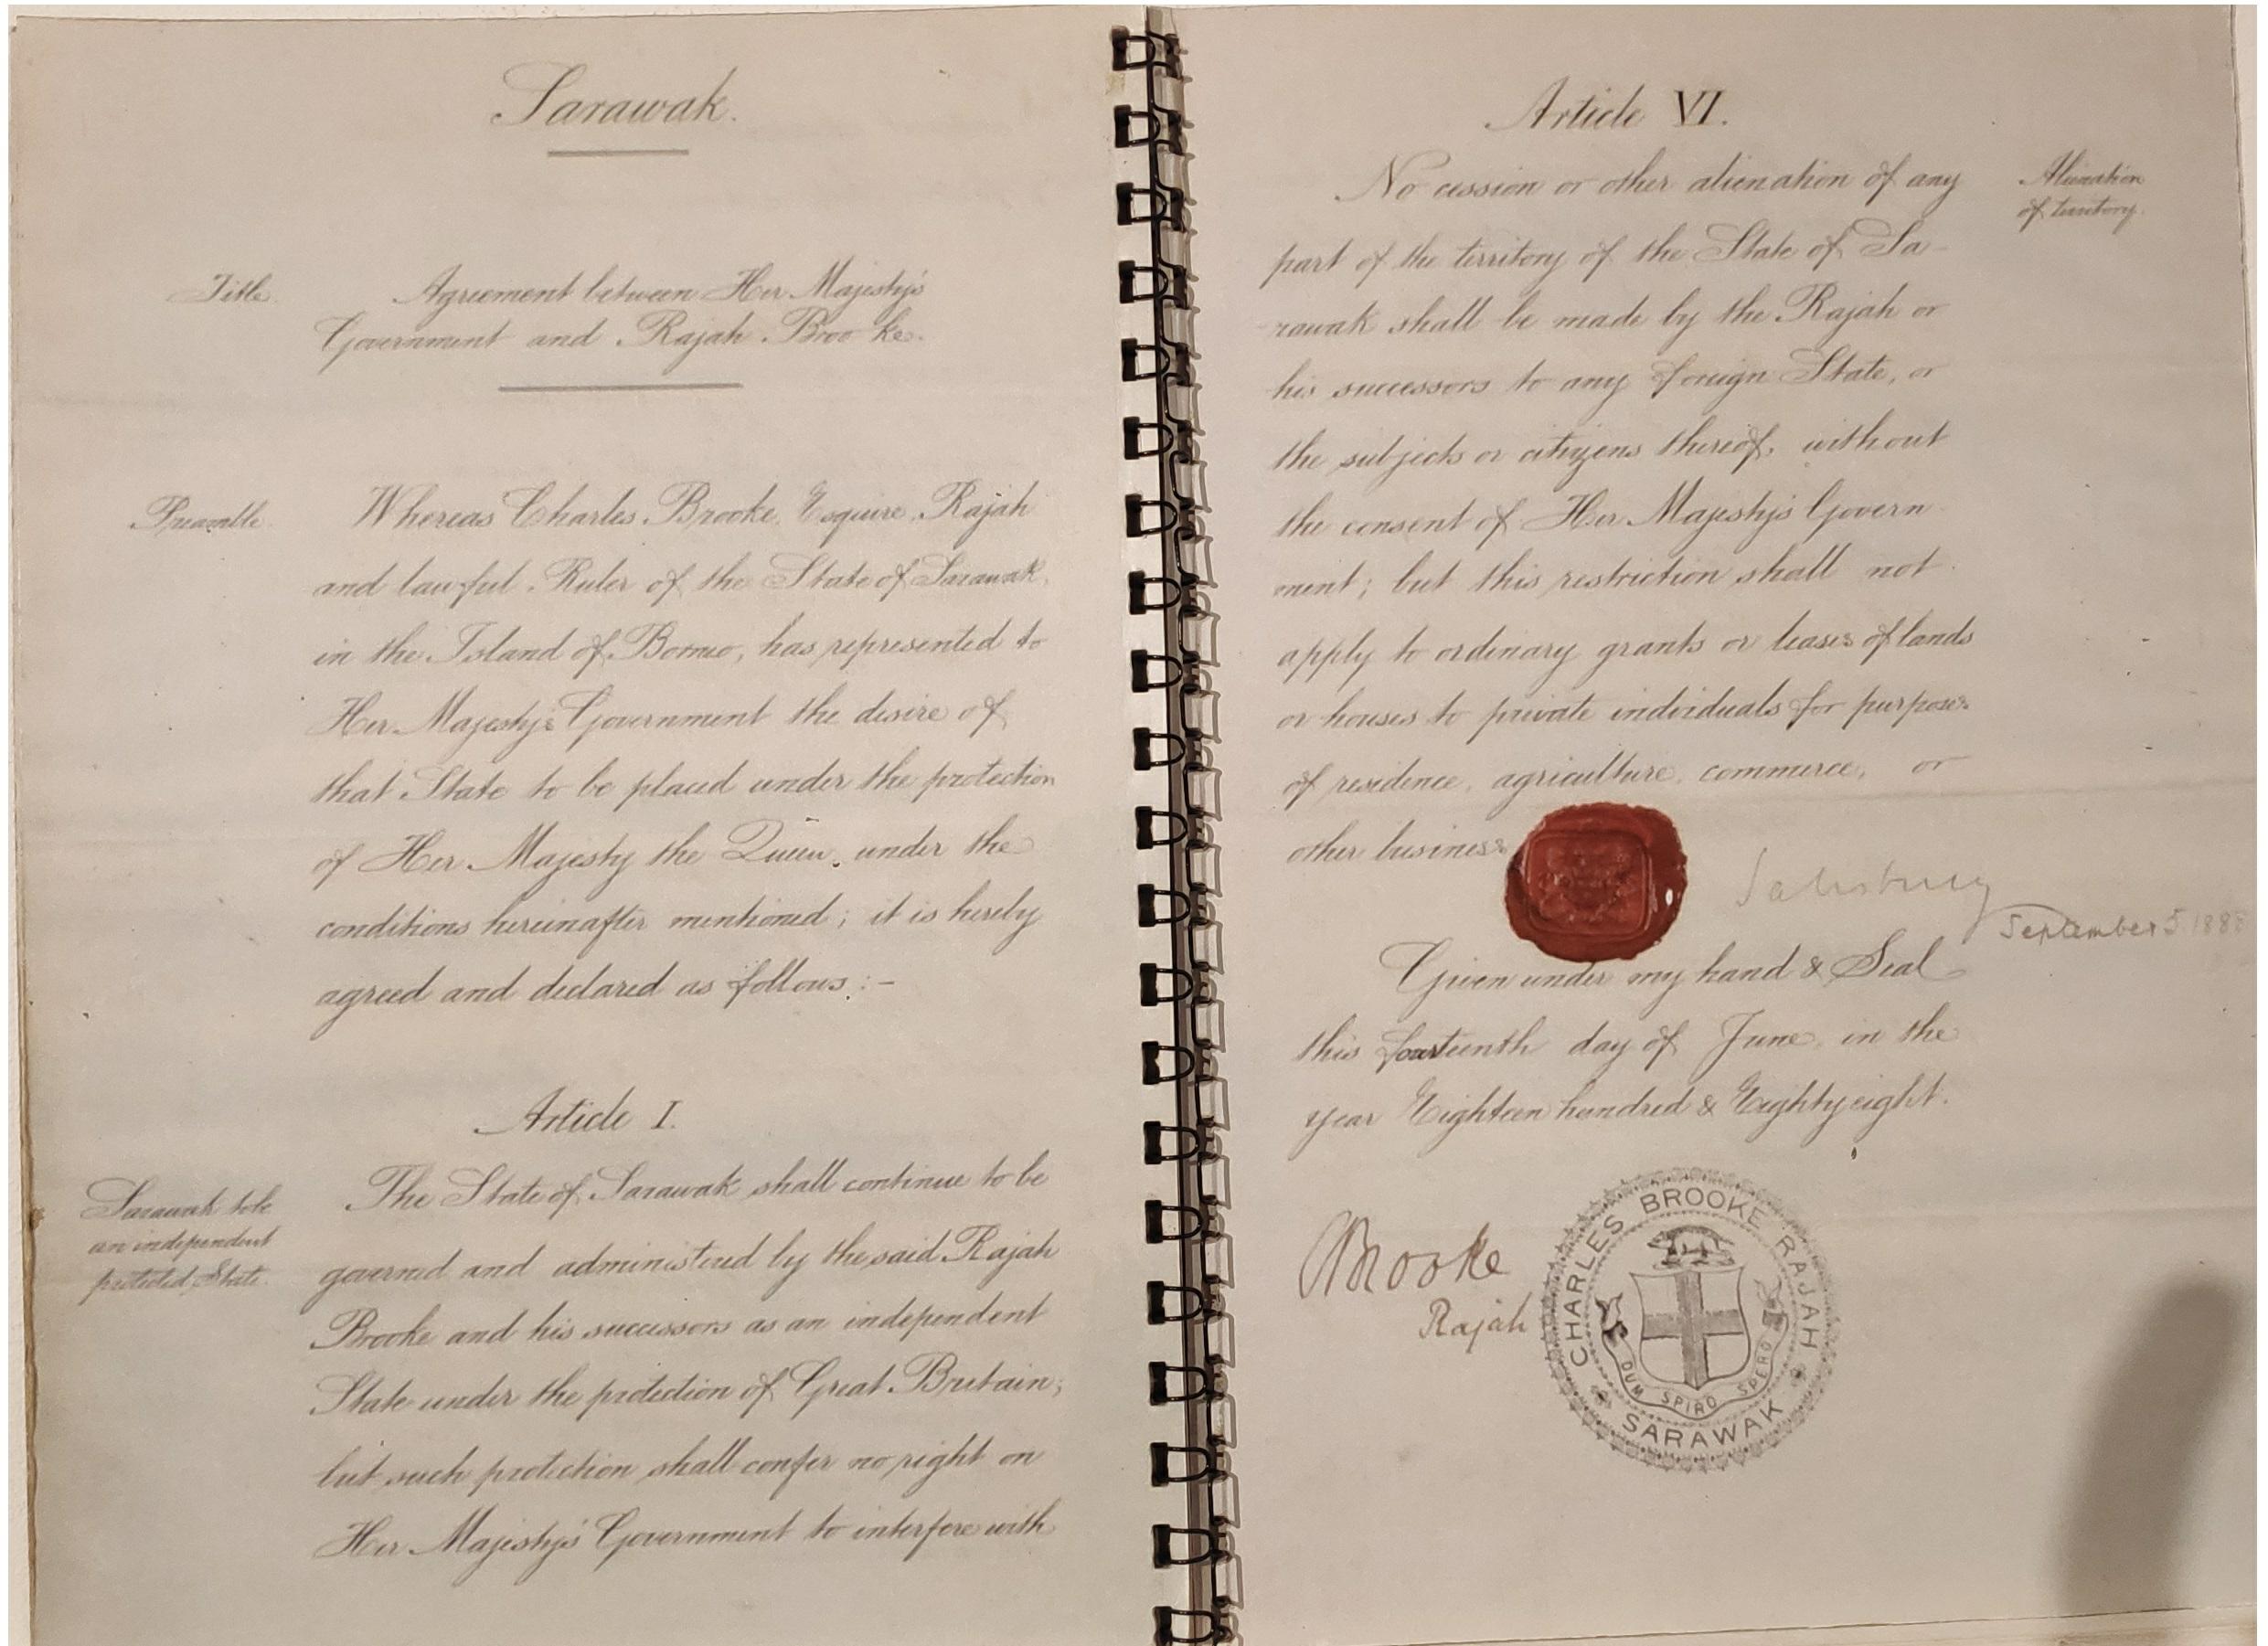 Sarawak.
Title.
Agreement between Her Majesty's
Government and Rajah Brooke.
Preamble.
Whereas Charles Brooke, Esquire, Rajah
and lawful Ruler of the State of Sarawak,
in the Island of Borneo, has represented to
Her Majesty's Government the desire of
that State to be placed under the protection
of Her Majesty the Queen, under the
conditions hereinafter mentioned; it is hereby
agreed and declared as follows:-
Article I.
Sarawak to be
an independent
protected State.
The State of Sarawak shall continue to be
governed and administered by the said Rajah
Brooke and his successors as an independent
State under the protection of Great Britain;
but such protection shall confer no right on
Her Majesty's Government to interfere with
Article VI.
Alienation
of territory.
No cession or other alienation of any
part of the territory of the State of Sa-
rawak shall be made by the Rajah or
his successors to any foreign State, or
the subjects or citizens thereof, without
the consent of Her Majesty's Govern-
ment; but this restriction shall not
apply to ordinary grants or leases of lands
or houses to private individuals for purposes
of residence, agriculture, commerce, or
other business.
Salisbury
September 5. 1888
Given under my hand & Seal
this fourteenth day of June, in the
year Eighteen hundred & Eighty eight.
CBrooke
Rajah
CHARLES BROOKE RAJAH
DUM SPIRO SPERO
SARAWAK